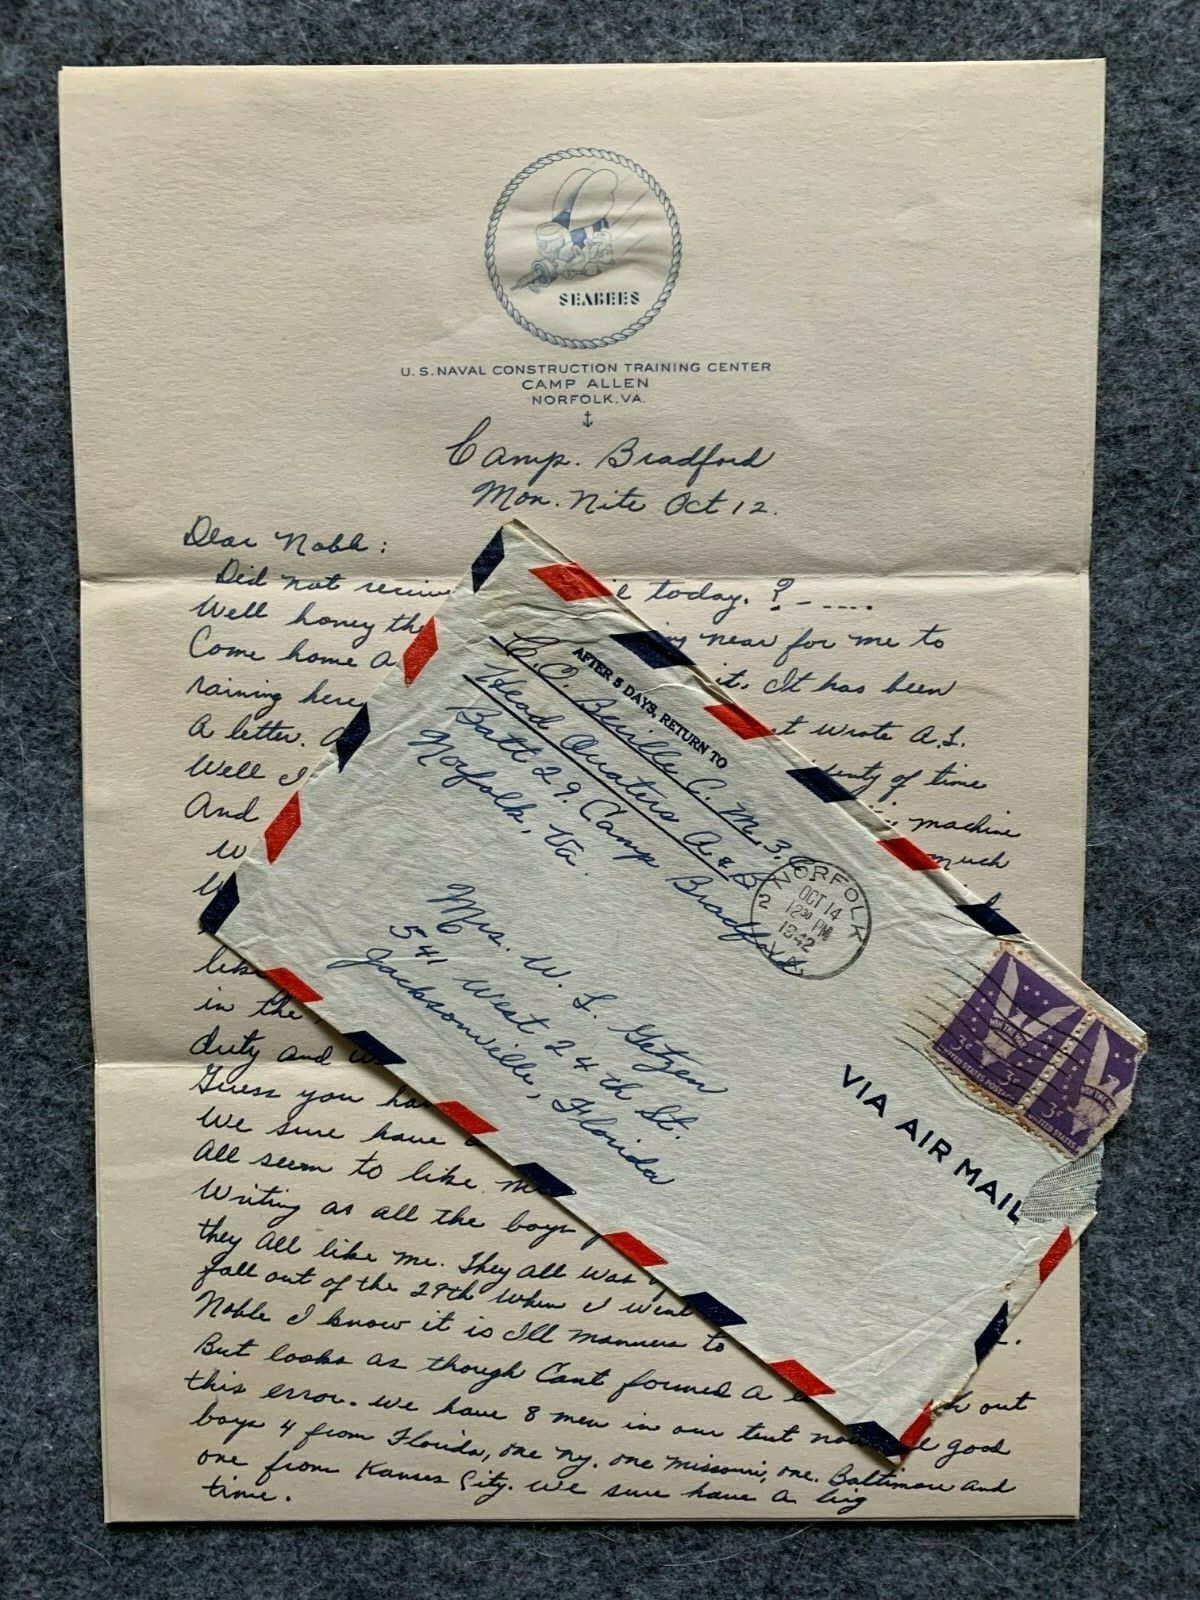 SEABEES
U.S. NAVAL CONSTRUCTION TRAINING CENTER
CAMP ALLEN
NORFOLK, VA.
Camp. Bradford
Mon. Nite Oct 12.
Dear Noble:
Did not receiv today. ? - ....
Well honey th near for me to
Come home a it. It has been
raining here t wrote A.L.
A letter. of time
Well I machine
And much
W
like
in the
duty and
Guess you ha
We sure have
All seem to like me
Writing as all the boys
they all like me. They all was
fall out of the 29th when I went
Noble I know it is Ill manners to
But looks as though Cant formed a out
this error. we have 8 men in our tent now good
boys 4 from Florida, one ny. one missouri, one. Baltimore and
one from Kansas City. We sure have a big
time.
AFTER 5 DAYS, RETURN TO
C.O. Beville C. M. 3.C.
Head Quaters A & D
Batt 29. Camp Bradford.
Norfolk, Va.
NORFOLK
2
OCT 14
12 30 PM
1942
VA.
Mrs. W. L. Getzen
541 West 24th St.
Jacksonville, Florida
WIN THE WAR
3¢ 3¢
UNITED STATES POSTAGE
UNITED STATES
VIA AIR MAIL